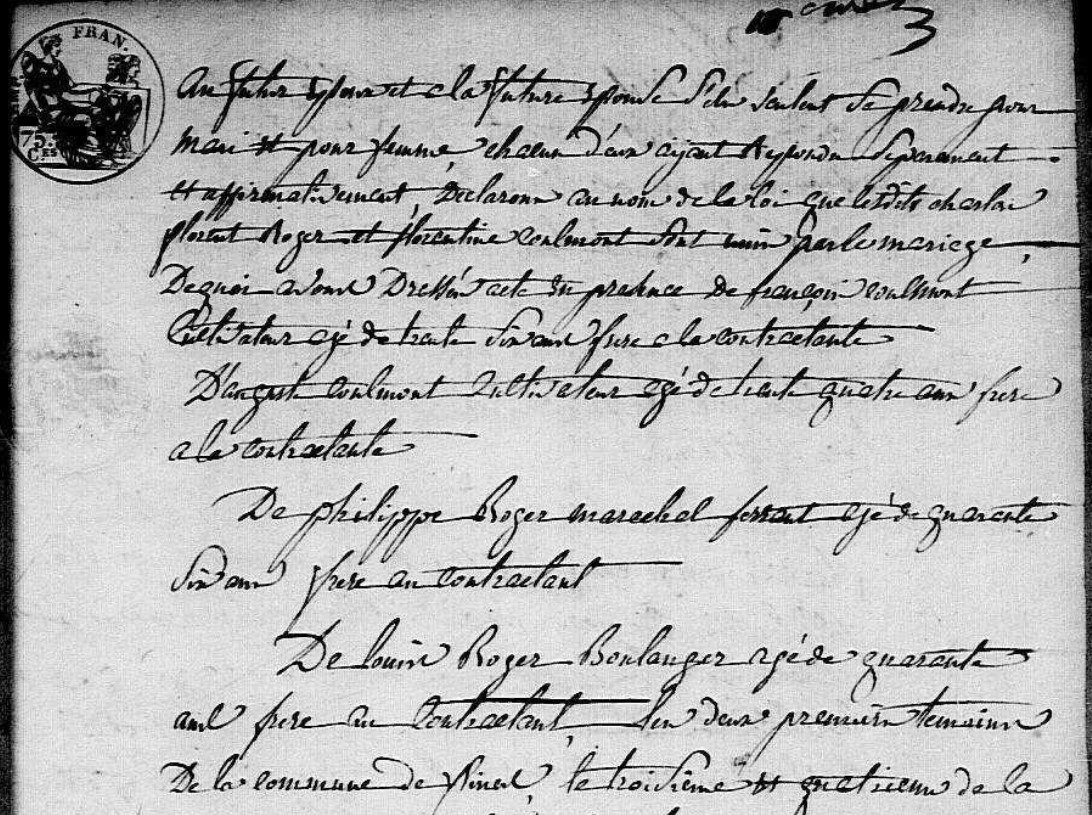 FRAN.
75.
Ces
au futur Epoux et a la future Epouse S'ils veulent Se prendre pour
mari et pour femme, chacun d'eux ayant Repondu Séparement
et affirmativement, Declarons au nom de la loi que lesdits charles
florent Roger et florentine coulmont sont unis par le mariage,
De quoi avons Dressés acte En presence De françois coulmont
Cultivateur agé de trente Six ans frere a la contractante
D'auguste coulmont Cultivateur agé de trente quatre ans frere
a la contractante
De philippe Roger marechal ferrant agé de quarante
Six ans frere au contractant
De louis Roger Boulanger agé de quarante
ans frere au Contractant, Les deux premiers temoins
De la commune de, le troisième et quatrieme de la